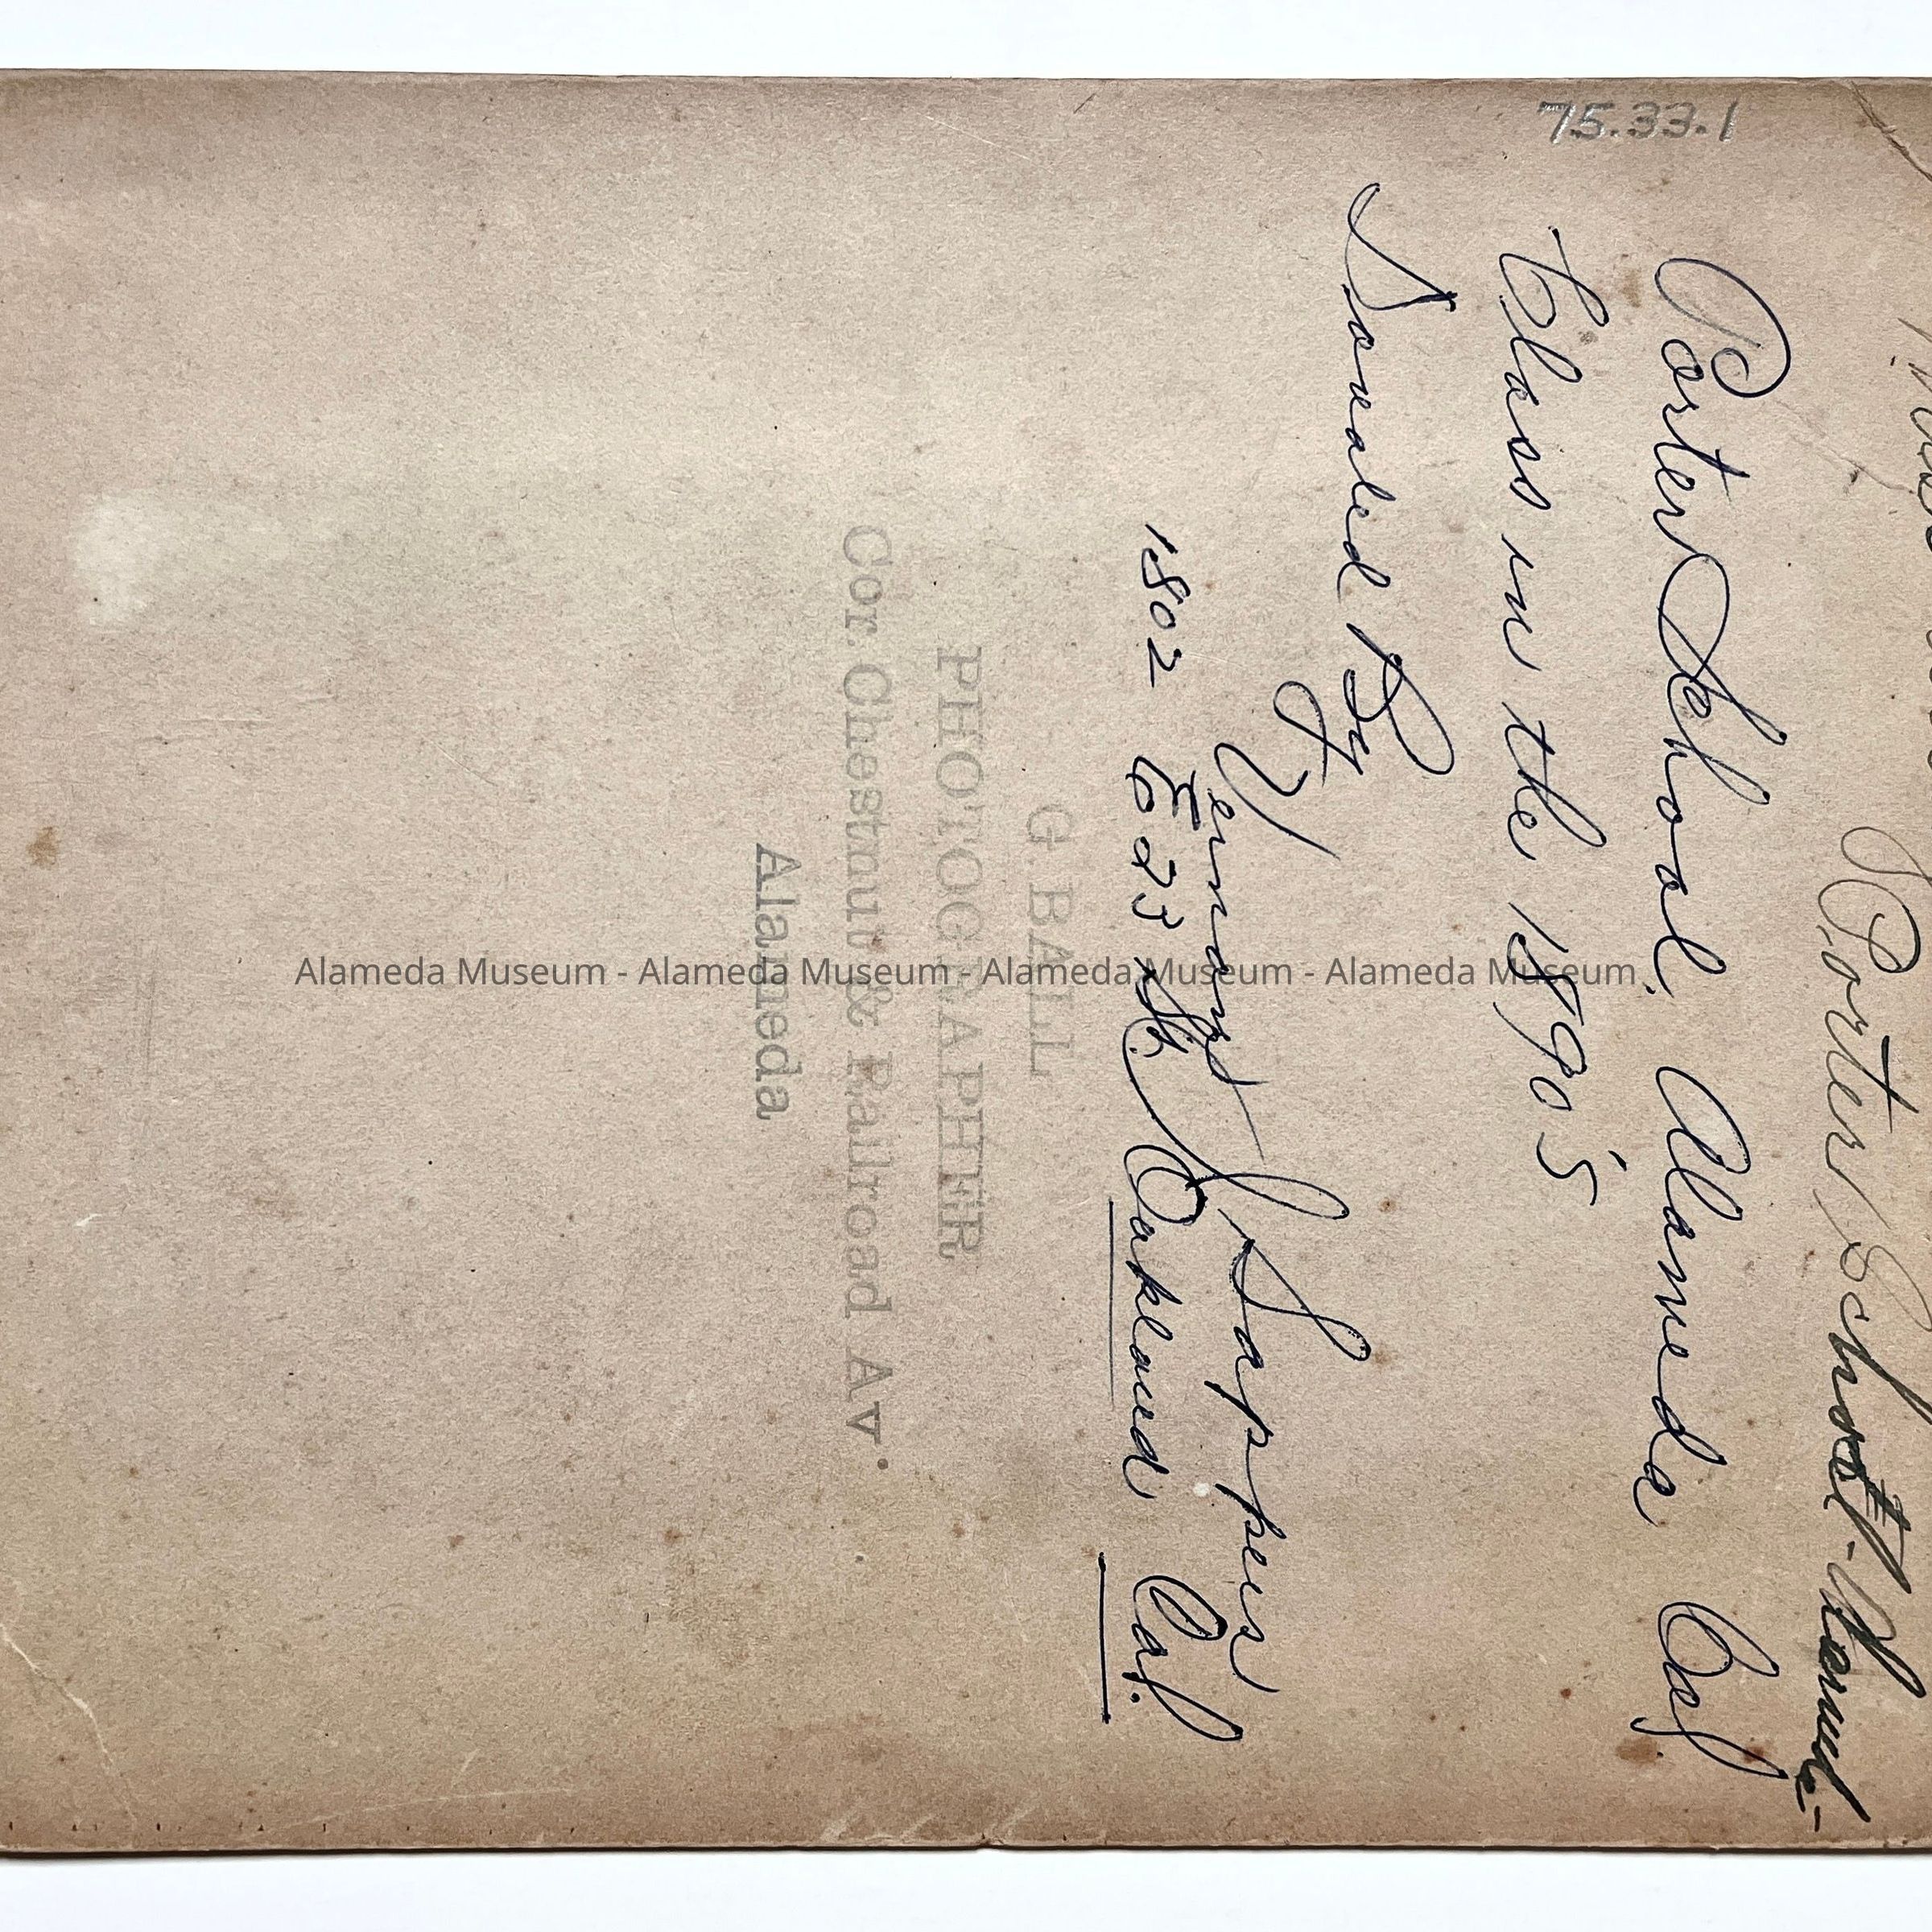 75.33.1
Porter School - Alameda -
Porter School, Alameda Cal
Class in the 1890's
Donated By
Vernard J. Sappers
1802 E 23 St. Oakland Cal.
G. BALL
PHOTOGRAPHER
Cor. Chestnut & Railroad Av.
Alameda
Alameda Museum - Alameda Museum - Alameda Museum - Alameda Museum